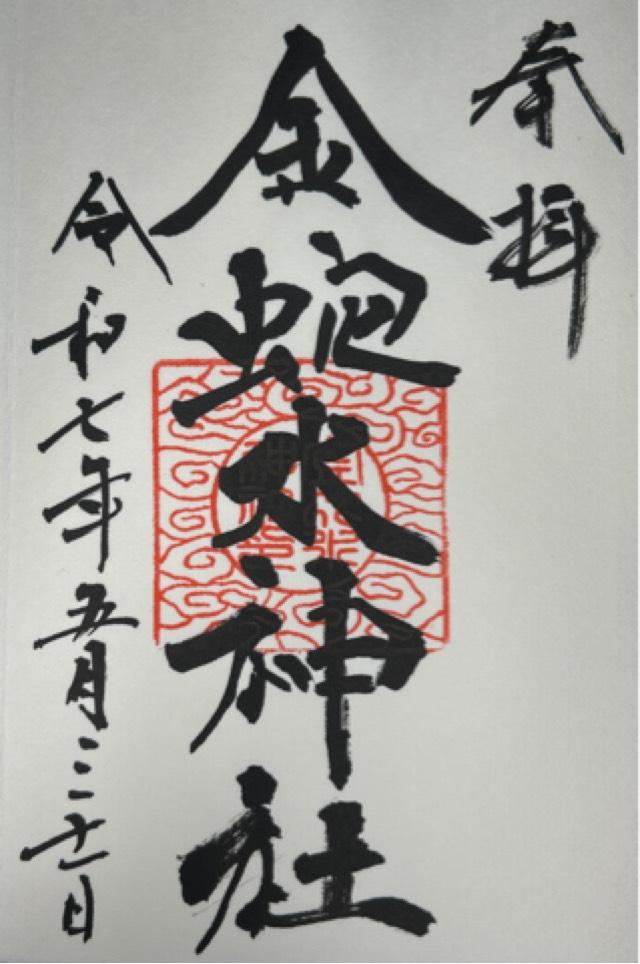 奉拝
金蛇水神社
令和七年五月三十一日